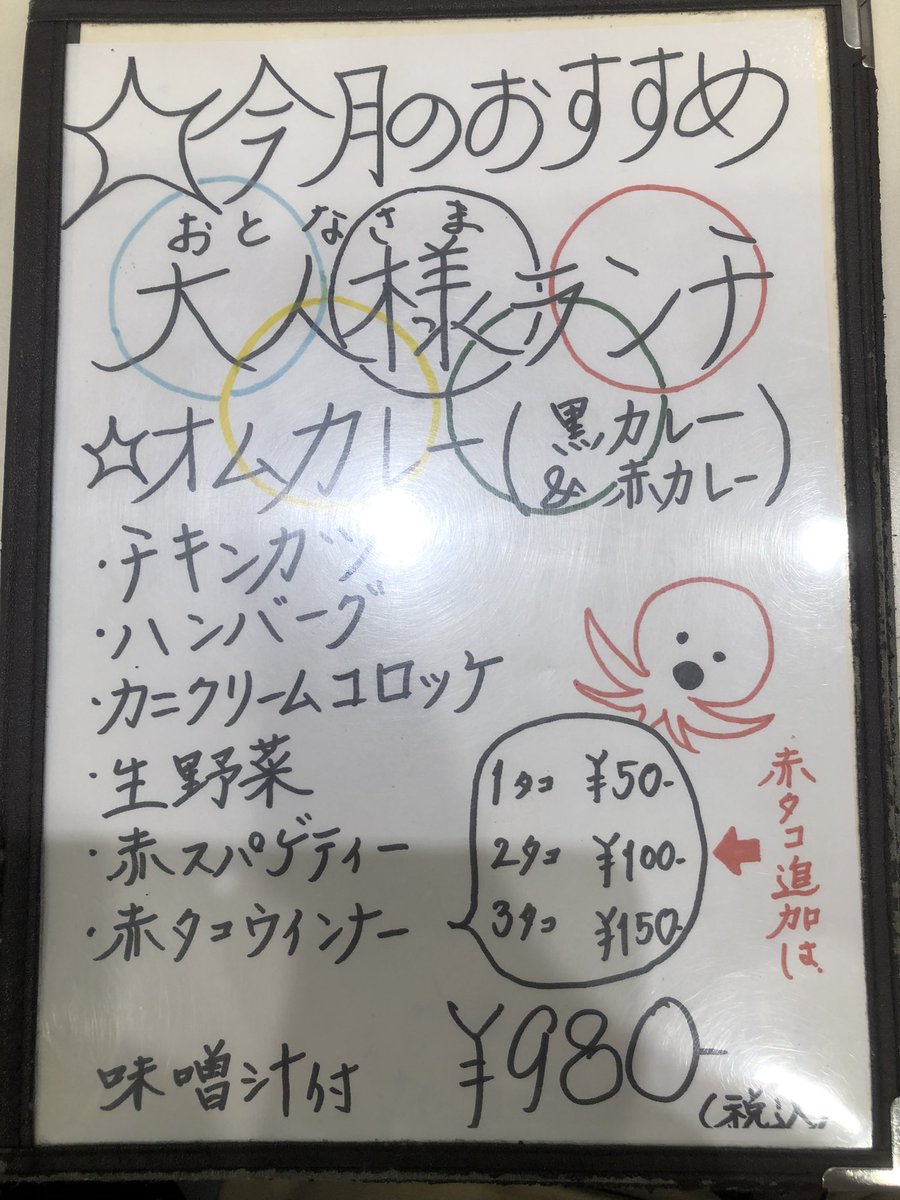 ☆今月のおすすめ
おとなさま
大人様ランチ
☆オムカレー(黒カレー
&赤カレー)
・チキンカツ
・ハンバーグ
・カニクリームコロッケ
・生野菜
・赤スパゲティー
・赤タコウインナー
1タコ ¥50-
2タコ ¥100-
3タコ ¥150-
赤タコ追加は
味噌汁付 ¥980-
(税込)